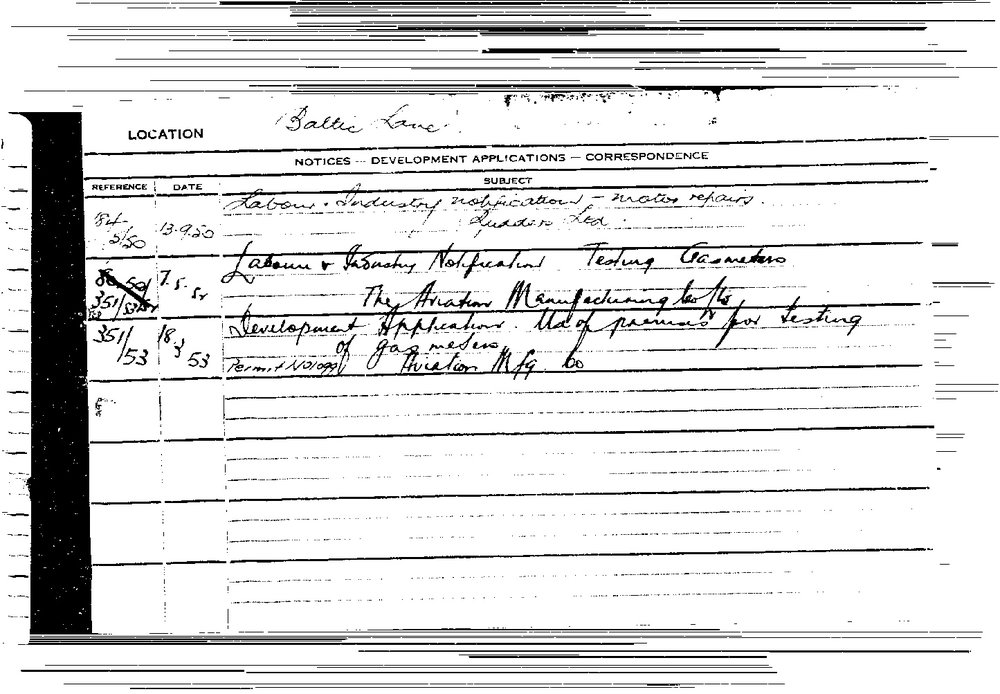 LOCATION Baltic Lane
NOTICES — DEVELOPMENT APPLICATIONS — CORRESPONDENCE
REFERENCE DATE SUBJECT
Labour & Industry notification – motor repairs.
84/5/50 13.9.50 Ltd.
Labour & Industry Notification Testing Gasmeters
351/53 7.5.
The Aviation Manufacturing Co P/L
351/53 18 3 53 Development Application. Use of premises for testing
of gas meters
Permit No Aviation Mfg. Co